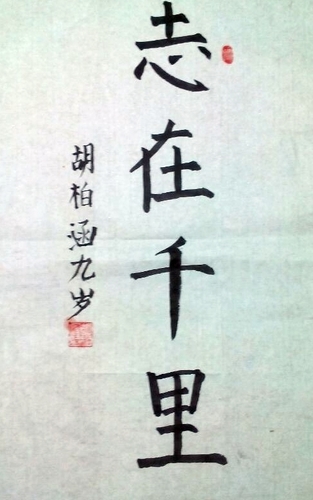 志在千里
胡柏涵九岁